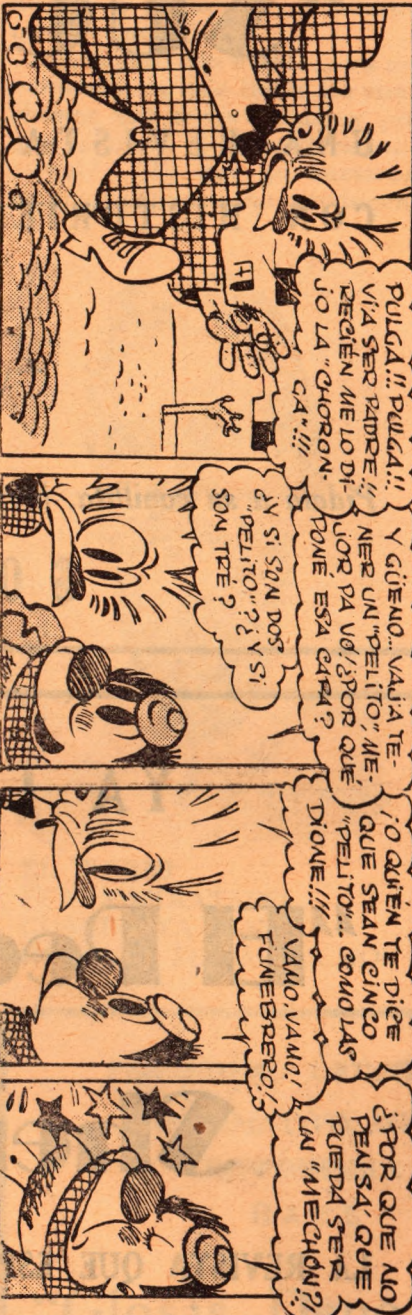 PULGA!! PULGA!!
VÍA SER PADRE!!
RECIÉN ME LO DI-
JO LA "CHORON-
GA"!!!
Y GÜENO... VAJ'A TE-
NER UN "PELITO", ME-
JOR PA VO! ¿POR QUÉ
PONÉ ESA CARA?
¿Y SI SON DOS
"PELITO"? ¿Y SI
SON TRÉ?
¡O QUIÉN TE DICE
QUE SEAN CINCO
"PELITO"... COMO LAS
DIONE!!!
VAMO, VAMO!
FÚNEBRERO!
¿POR QUE NO
PENSA' QUE
PUEDA SER
UN "MECHÓN?!!